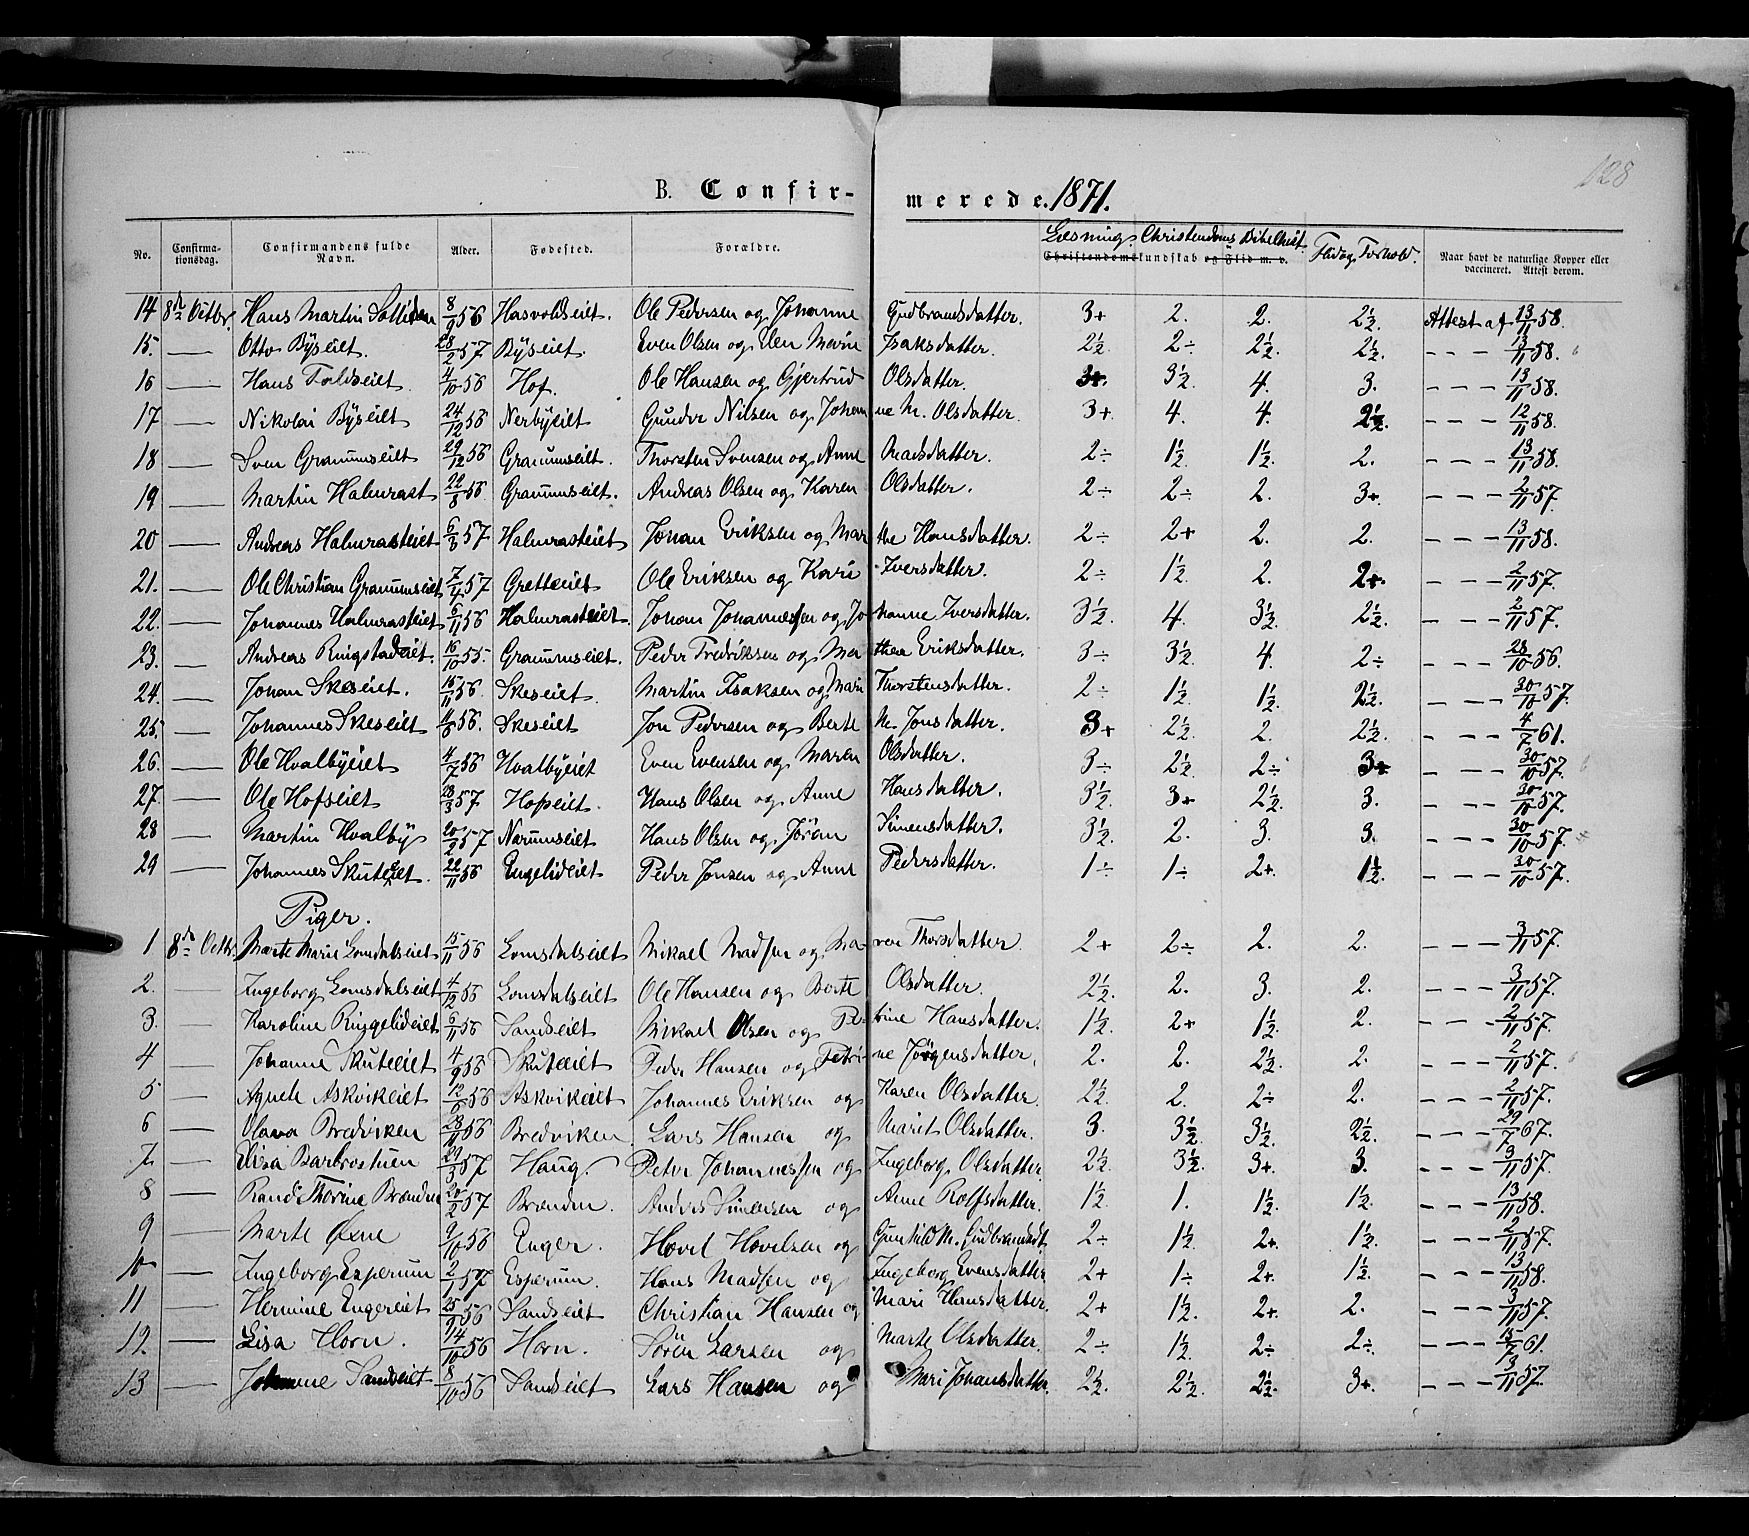 128
B. Confirmerede. 1871.
No. Confirmationsdag. Confirmandens fulde Navn. Alder. Fødested. Forældre. Læsning. Christendoms Bibelhist. Flid og Forhold. Naar havt de naturlige Kopper eller vaccineret. Attest derom.
Christendomskundskab og Flid m. v.
14 8de Octbr. Hans Martin 8/9 56 Hasvoldseiet. Ole Pedersen og Johanne Gudbrandsdatter. 3+ 2. 2. 2½. Attest af 13/11 58.
15. — Otto Byseiet. 28/2 57 Byseiet. Even Olsen og Elen Marie Isaksdatter. 2½ 2÷ 2½. 2½. - - - 13/11 58.
16 — Hans Foldseiet. 4/10 56 Hof. Ole Hansen og Gjertrud Olsdatter. 3+. 3½ 4. 3. - - - 13/11 58.
17 — Nikolai Byseiet 24/12 56 Nerbyeiet Gunder Nilsen og Johanne M. Olsdatter. 3+ 4. 4. 2½. - - - 12/11 58.
18 — Sven Granumseiet 29/12 56 Granumseiet. Thorsten Svensen og Anne Madsdatter. 2÷ 1½. 1½. 2. - - - 13/11 58.
19 — Martin Halmrast 22/8 56 Granumseiet. Andreas Olsen og Karen Olsdatter. 2÷ 2÷ 2. 3+ - - - 2/11 57.
20 — Andreas Halmrasteiet 6/3 57 Halmrasteiet Johan Eriksen og Marthe Hansdatter. 2÷ 2+ 2. 2. - - - 13/11 58.
21. — Ole Christian Granumseiet 7/4 57 Gretteeiet Ole Eriksen og Kari Iversdatter. 2÷ 1½ 2. 2+. - - - 2/11 57.
22. — Johannes Halmrasteiet 6/11 56 Halmrasteiet. Johan Johannessen og Johanne Iversdatter. 3½ 4. 3½ 2½. - - - 2/11 57.
23. — Andreas Ringstadeiet. 16/10 55. Granumseiet. Peder Fredriksen og Marthea Eriksdatter. 3÷ 3½ 4. 2÷ - - - 28/10 56.
24. — Johan Skeseiet. 15/11 56. Skeseiet. Martin Isaksen og Mari Thorstensdatter. 2÷ 1½ 1½. 2½. - - - 30/10 57.
25. — Johannes Skeseiet 4/6 56. Skeseiet Jon Pedersen og Berte M. Jonsdatter. 3+ 2½. 2. 2½. - - - 4/7 61.
26. — Ole Hvalbyeiet 4/7 56 Hvalbyeiet Even Evensen og Maren Olsdatter. 3÷ 2½ 2÷ 3+ - - - 30/10 57.
27. — Ole Hofseiet 28/3 57 Hofseiet. Hans Olsen og Anne Hansdatter. 3½. 3+ 2½. 3. - - - 30/10 57.
28 — Martin Hvalby 20/2 57 Narumseiet Hans Olsen og Jöran Simensdatter. 3½. 2. 3. 3. - - - 30/10 57.
29 — Johannes Skuteeiet. 22/11 56 Engelideiet Peder Jonsen og Anne Pedersdatter. 1÷ 1÷ 2+. 1½. - - - 30/10 57.
Piger.
1 8de Octbr. Marte Marie Lomsdalseiet 15/11 56 Lomsdalseiet Mikael Madsen og Maren Thorsdatter. 2+ 2÷ 2. 2. - - - 3/11 57.
2. — Ingeborg Lomsdalseiet 4/12 56 Lomsdalseiet Ole Hansen og Berte Olsdatter. 2½. 2. 3. 2. - - - 3/11 57.
3. — Karoline Ringelideiet 6/11 56 Sandseiet Mikael Olsen og Petrine Hansdatter. 1½. 2+ 1½. 2. - - - 2/11 57.
4 — Johanne Skuteeiet 4/9 56 Skuteeiet Peder Hansen og Petrine Jörgensdatter. 2. 2. 2½. 2. - - - 2/11 57.
5 — Agnete Askvikeiet 12/6 56 Askvikeiet Johannes Eriksen og Karen Olsdatter. 2½. 2. 2÷ 2. - - - 2/11 57.
6 — Olava Bredviken 28/11 56 Bredviken. Lars Hansen og Marit Olsdatter. 3. 3½. 3½. 2½. - - - 29/7 67.
7 — Elisa Barbrostuen 29/3 57 Haug. Peter Johannessen og Ingeborg Olsdatter. 2½. 3½. 3+. 3. - - - 13/11 57.
8 — Randi Thorine Brænden 20/2 57 Brænden. Anders Simensen og Anne Rolfsdatter. 1½. 1. 1½. 1½. - - - 13/11 58.
9 — Marte Öxne 9/10 56 Enger. Hovel Hovelsen og Gunhild M. Gudbrandsdt 2÷ 1½. 2+. 1½. - - - 2/11 57.
10 — Ingeborg Esperum 2/1 57 Esperum. Hans Madsen og Ingeborg Evensdatter 2+ 1÷ 2+. 1½. - - - 13/11 58.
11 — Hermine Engereiet 25/9 56 Sandseiet Christian Hansen og Mari Hansdatter. 2+ 1½. 2+. 2. - - - 3/11 57.
12. — Lisa Horn. 14/10 56 Horn. Sören Larsen og Marte Olsdatter. 2÷ 1½. 2÷ 2÷. - - - 15/7 61.
13 — Johanne Sandseiet 8/10 56 Sandseiet Lars Hansen og Mari Johansdatter. 2½. 2½. 2½. 3+. - - - 13/11 57.